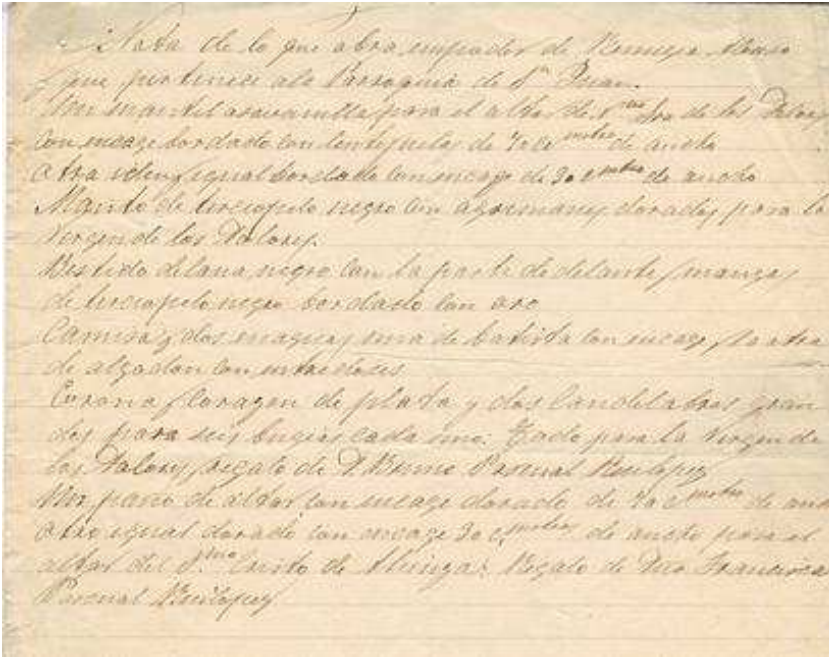 Nota de lo que obra en poder de
y que pertenece ala Parroquia de Sn Juan.
Un mantel para el altar de Ntra Sra de los Dolores
con encage bordado con lentejuelas de 70 cmetros de ancho
Otro idem igual bordado con encage de 30 cmetros de ancho
Manto de terciopelo negro con agremanes dorados para la
Virgen de los Dolores.
Bestido de lana negro con la parte de delante y mangas
de terciopelo negro bordado con oro
Camisa y dos enaguas, una de batista con encage, la otra
de algodon con entredoses
Corona y Corazon de plata y dos Candelabros gran
des para seis bugias cada uno: Todo para la Virgen de
los Dolores, regalo de D. Bruno Pascual Ruilopez
Un paño de altar con encage dorado de 70 cmetros de ancho
Otro igual dorado con encage 30 cmetros de ancho para el
altar del Smo Cristo de Regalo de Dña Francisca
Pascual Ruilopez